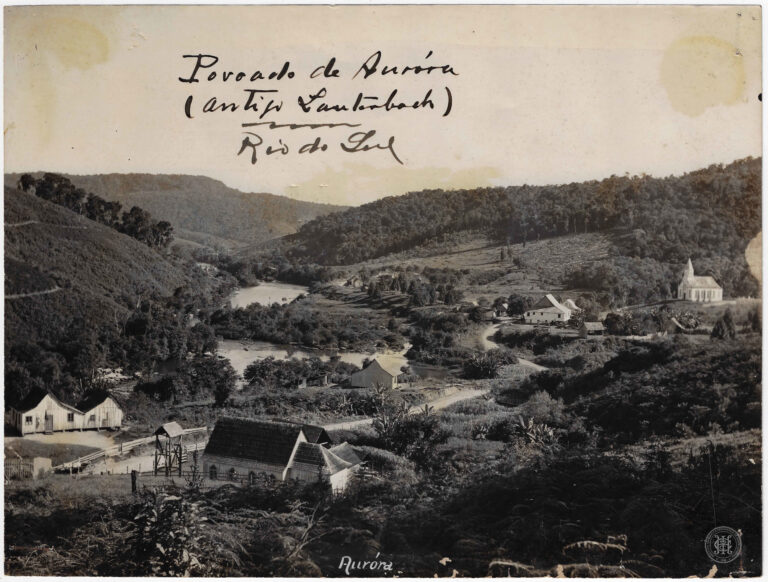 Povoado de Auróra
(antigo Lauterbach)
Rio do Sul
Auróra